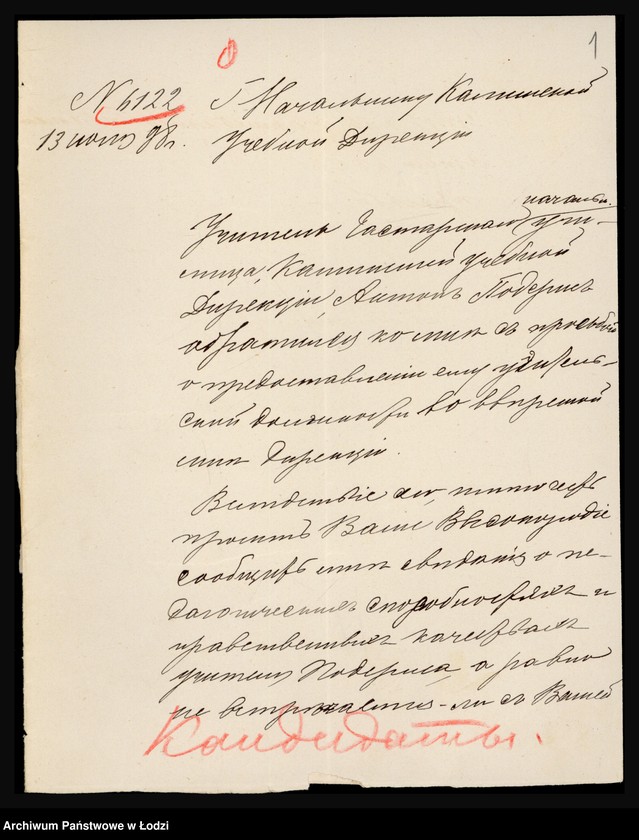 1
№ 6122
13 июля 98 г.
Г Начальнику Калишской
Учебной Дирекціи
началь.
Учитель учи-
лища, Калишской Учебной
Дирекціи, Антонъ
обратился ко мнѣ съ просьбой
о предоставленіи ему учитель-
ской должности во ввѣренной
мнѣ Дирекціи.
Вслѣдствіе сего, имѣю честь
просить Ваше Высокородіе
сообщить мнѣ свѣдѣнія о пе-
дагогическихъ способностяхъ и
нравственныхъ качествахъ
учителя а равно
не встрѣчается-ли съ Вашей
Кандидаты.
Archiwum Państwowe w Łodzi